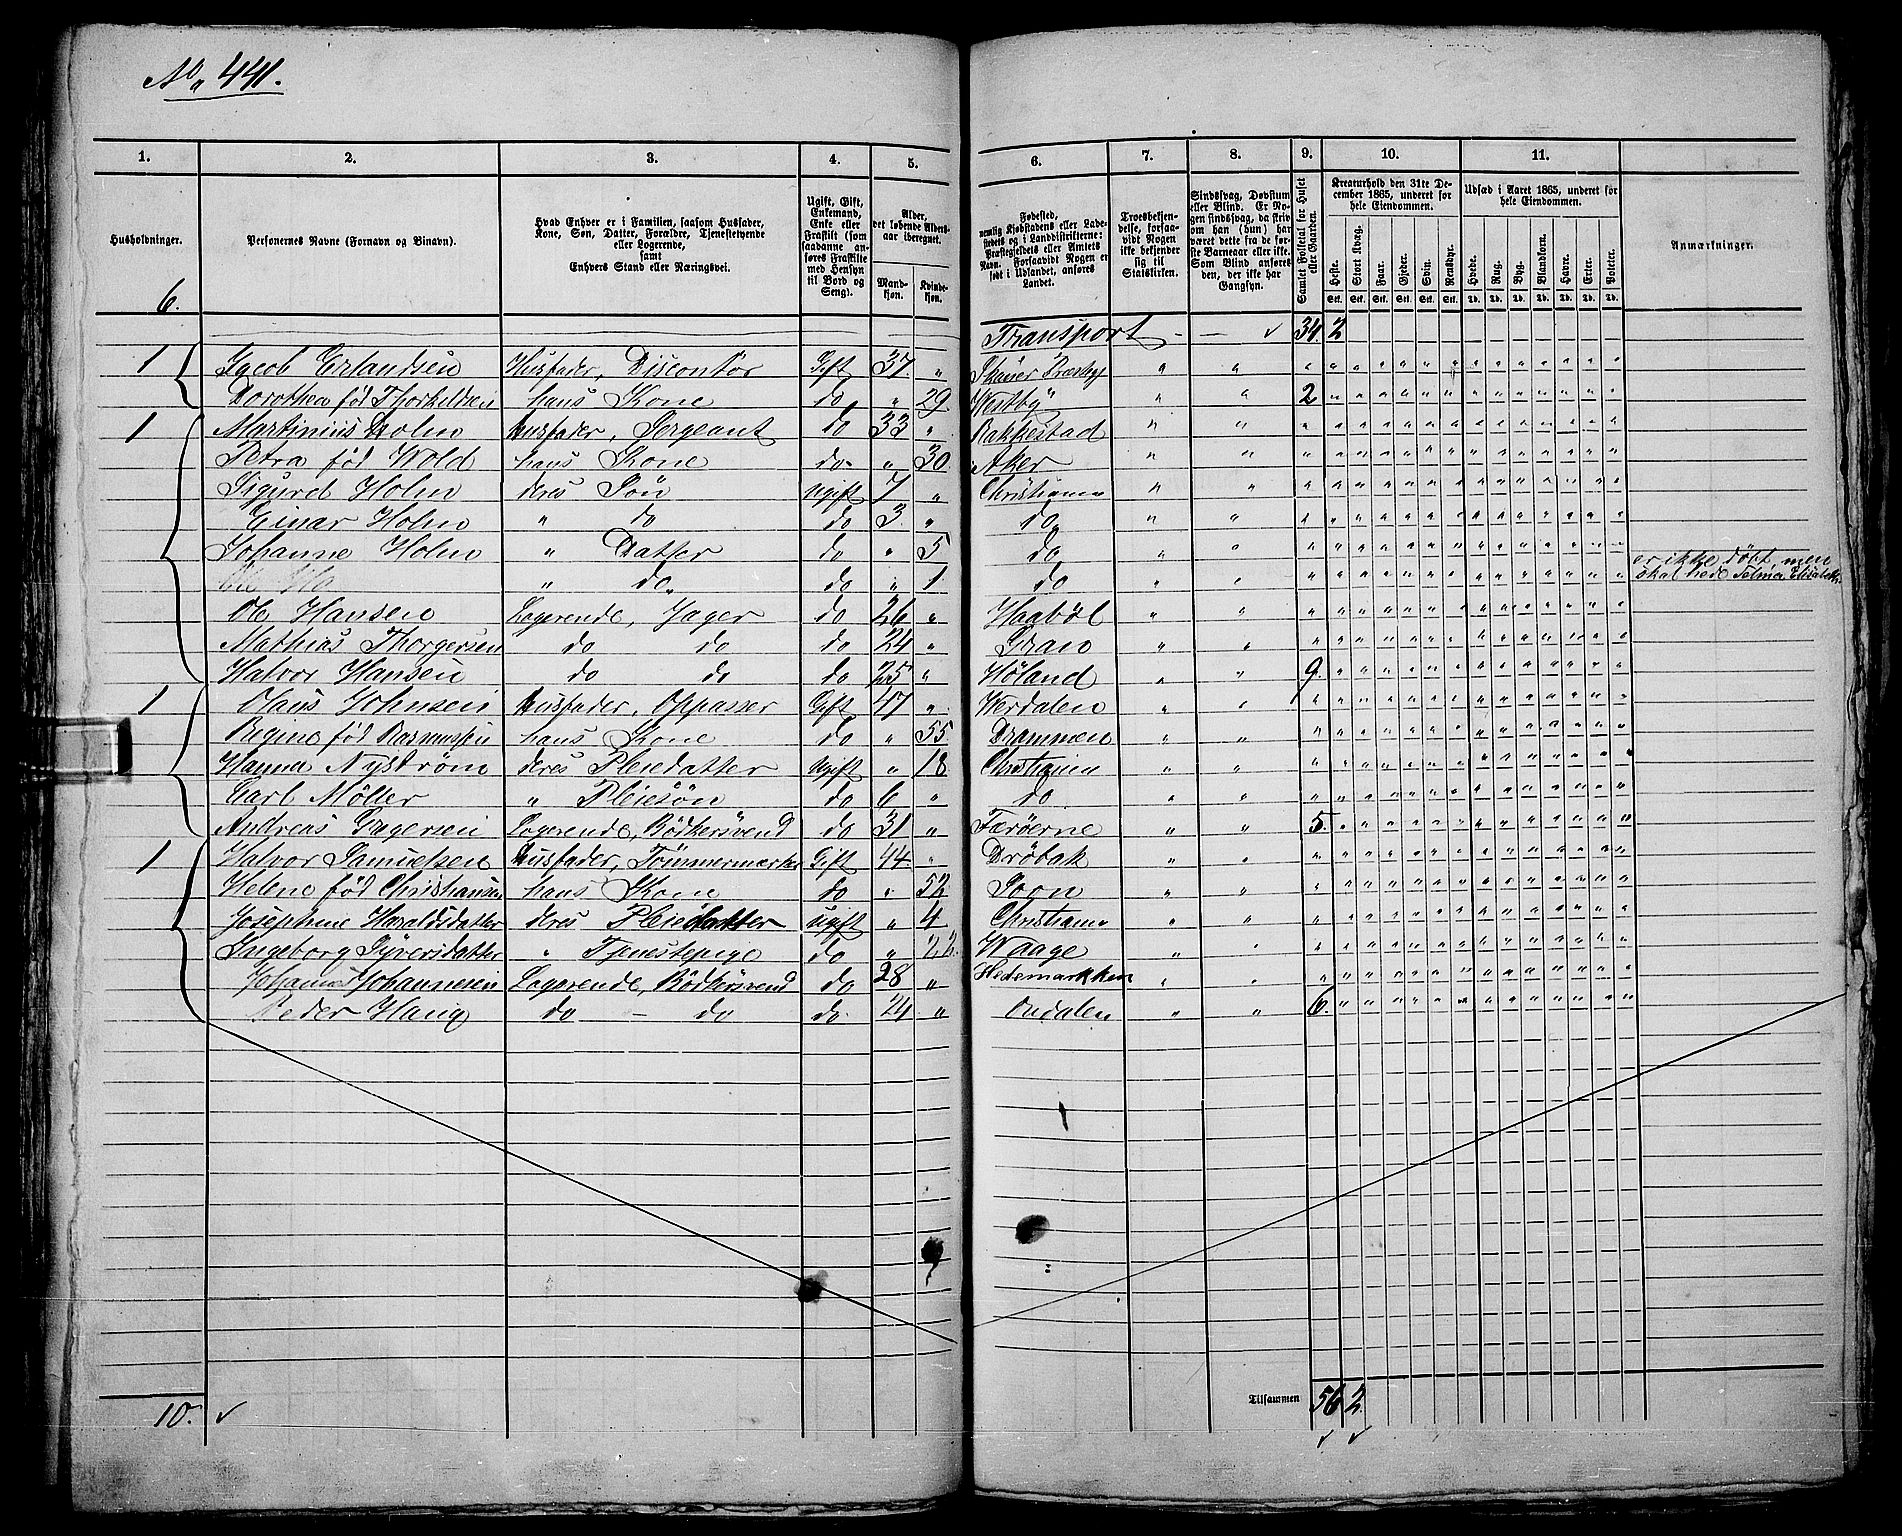 No 441.
1. 2. 3. 4. 5. 6. 7. 8. 9. 10. 11.
Husholdninger.
Personernes Navne (Fornavn og Binavn).
Hvad Enhver er i Familien, saasom Husfader,
Kone, Søn, Datter, Forældre, Tjenestetyende
eller Logerende,
samt
Enhvers Stand eller Næringsvei.
Ugift, Gift,
Enkemand,
Enke eller
Fraskilt (som
saadanne an-
føres Fraskilte
med Hensyn
til Bord og
Seng).
Alder,
det løbende Alders-
aar iberegnet.
Mand-
kjøn.
Kvinde-
kjøn.
Fødested,
nemlig Kjøbstadens eller Lade-
stedets og i Landdistrikterne:
Præstegjeldets eller Amtets
Navn. Forsaavidt Nogen er
født i Udlandet, anføres
Landet.
Troesbekjen-
delse, forsaa-
vidt Nogen
ikke bekjender
sig til
Statskirken.
Sindssvag, Døvstum
eller Blind. Er No-
gen sindssvag, da skriv
om han (hun) har
været dette fra de før-
ste Barneaar eller ikke.
Som Blind anføres
den, der ikke har
Gangsyn.
Samlet Folketal for Huset
eller Gaarden.
Kreaturhold den 31te De-
cember 1865, underet for
hele Eiendommen.
Heste. Stort Kvæg. Faar. Gjeder. Svin. Rensdyr.
Stk. Stk. Stk. Stk. Stk. Stk.
Udsæd i Aaret 1865, underet for
hele Eiendommen.
Hvede. Rug. Byg. Blandkorn. Havre. Erter. Poteter.
Td. Td. Td. Td. Td. Td. Td.
Anmærkninger.
6.
Transport - - ✓ 34. 2
1 Jacob Erlandsen Husfader, Gift 37 "
Dorothea fød Thorkildsen hans Kone do " 29 Westby " " 2
1 Martinius Holm Husfader, Sergeant do 33 " Rakkestad
Petra fød Wold hans Kone do " 30 Aker
Sigurd Holm deres Søn Ugift 7 " Christiania
Einar Holm " do do 3 " do
Johanne Holm " Datter do " 5 do
" do do " 1 do er ikke døpt, men
skal hede Selma Elisabeth.
Ole Hansen Logerende, Jager do 26 " Haabøl
Mathias Thorgersen do do do 24 " Gran
Halvor Hansen do do do 25 " Høland 9.
1 Olaus Johnsen Husfader, Oppasser Gift 47 " Werdalen
Regine fød Rasmussen hans Kone do " 55 Drammen
Hanna Nystrøm deres Pleiedatter Ugift " 18 Christiania
Carl Møller " Pleiesøn do 6 " do
Andreas Gregersen Logerende, Bødkersvend do 31 " Færøerne 5.
1 Halvor Samuelsen Husfader, Tømmermester Gift 44 " Drøbak
Helene fød Christiansen hans Kone do " 52 Soon
Josephine Haraldsdatter deres Pleiedatter Ugift " 4 Christiania
Ingeborg Syversdatter " Tjenestepige do " 22 Waage
Johannes Johannesen Logerende, Bødkersvend do 28 " Hedemarkken
Peder Haug do - do do 24 " Ondalen 6.
Tilsammen 56 2.
10. ✓ ✓ ✓